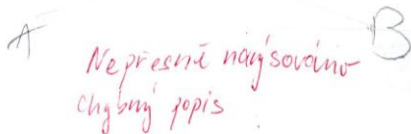 A B
Nepřesně narýsováno
chybný popis